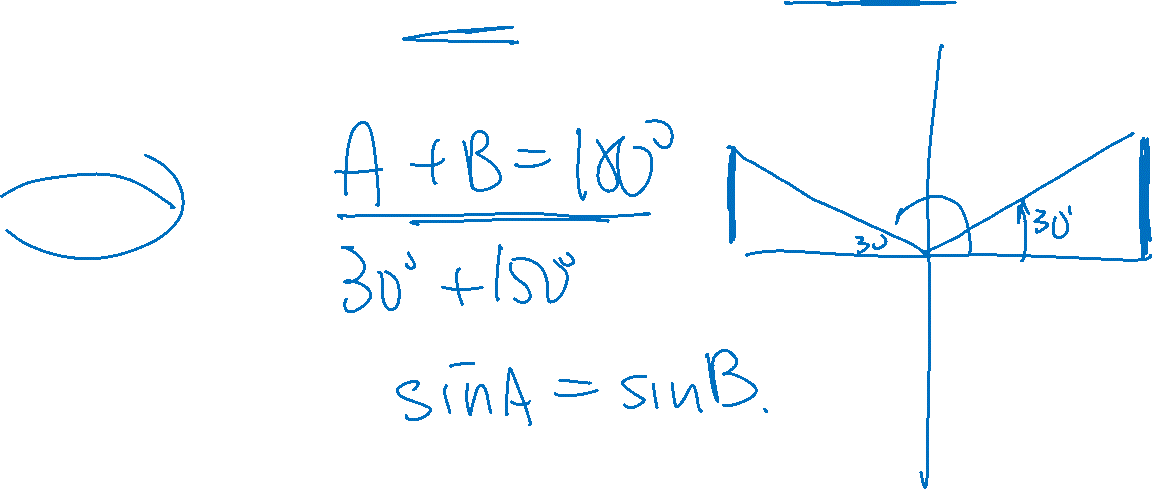 A + B = 180°
30° + 150°
sin A = sin B.
30
30°